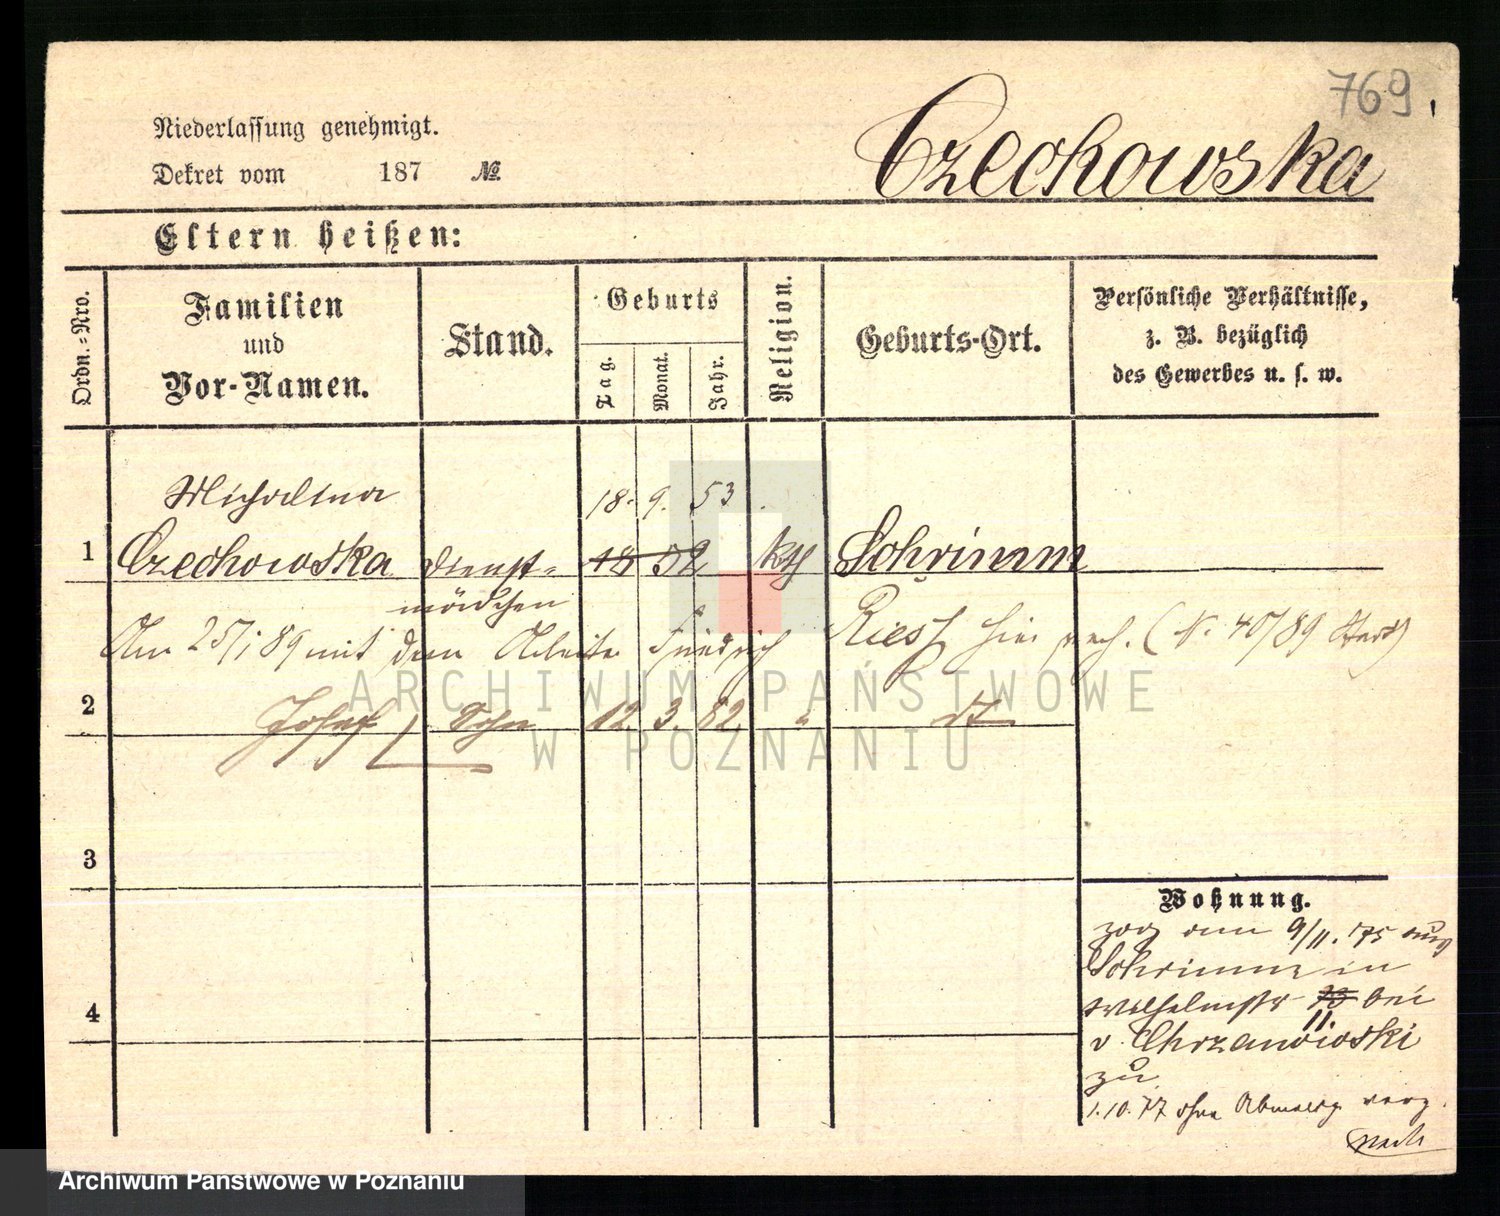 769.
Niederlassung genehmigt.
Dekret vom 187 №
Czechowska
Eltern heißen:
Ordn.-Nro.
Familien
und
Vor-Namen.
Stand.
Geburts
Tag.
Monat.
Jahr.
Religion.
Geburts-Ort.
Persönliche Verhältnisse,
z. B. bezüglich
des Gewerbes u. s. w.
Michalina
18. 9. 53
1 Czechowska Dienst= 18 52 kth Schrimm
mädchen
Am 25/1 89 mit dem Arbeiter Friedrich Riess hier (N. 40/89
2 Josef Sohn 12. 3. 82 " dt
3
4
Wohnung.
zog am 9/11. 75 aus
Schrimm in
Wilhelmstr 73 bei
11.
v. Chrzanowski
zu
1.10.77 ohne Abmeldg verz.
ARCHIWUM PAŃSTWOWE
W POZNANIU
Archiwum Państwowe w Poznaniu